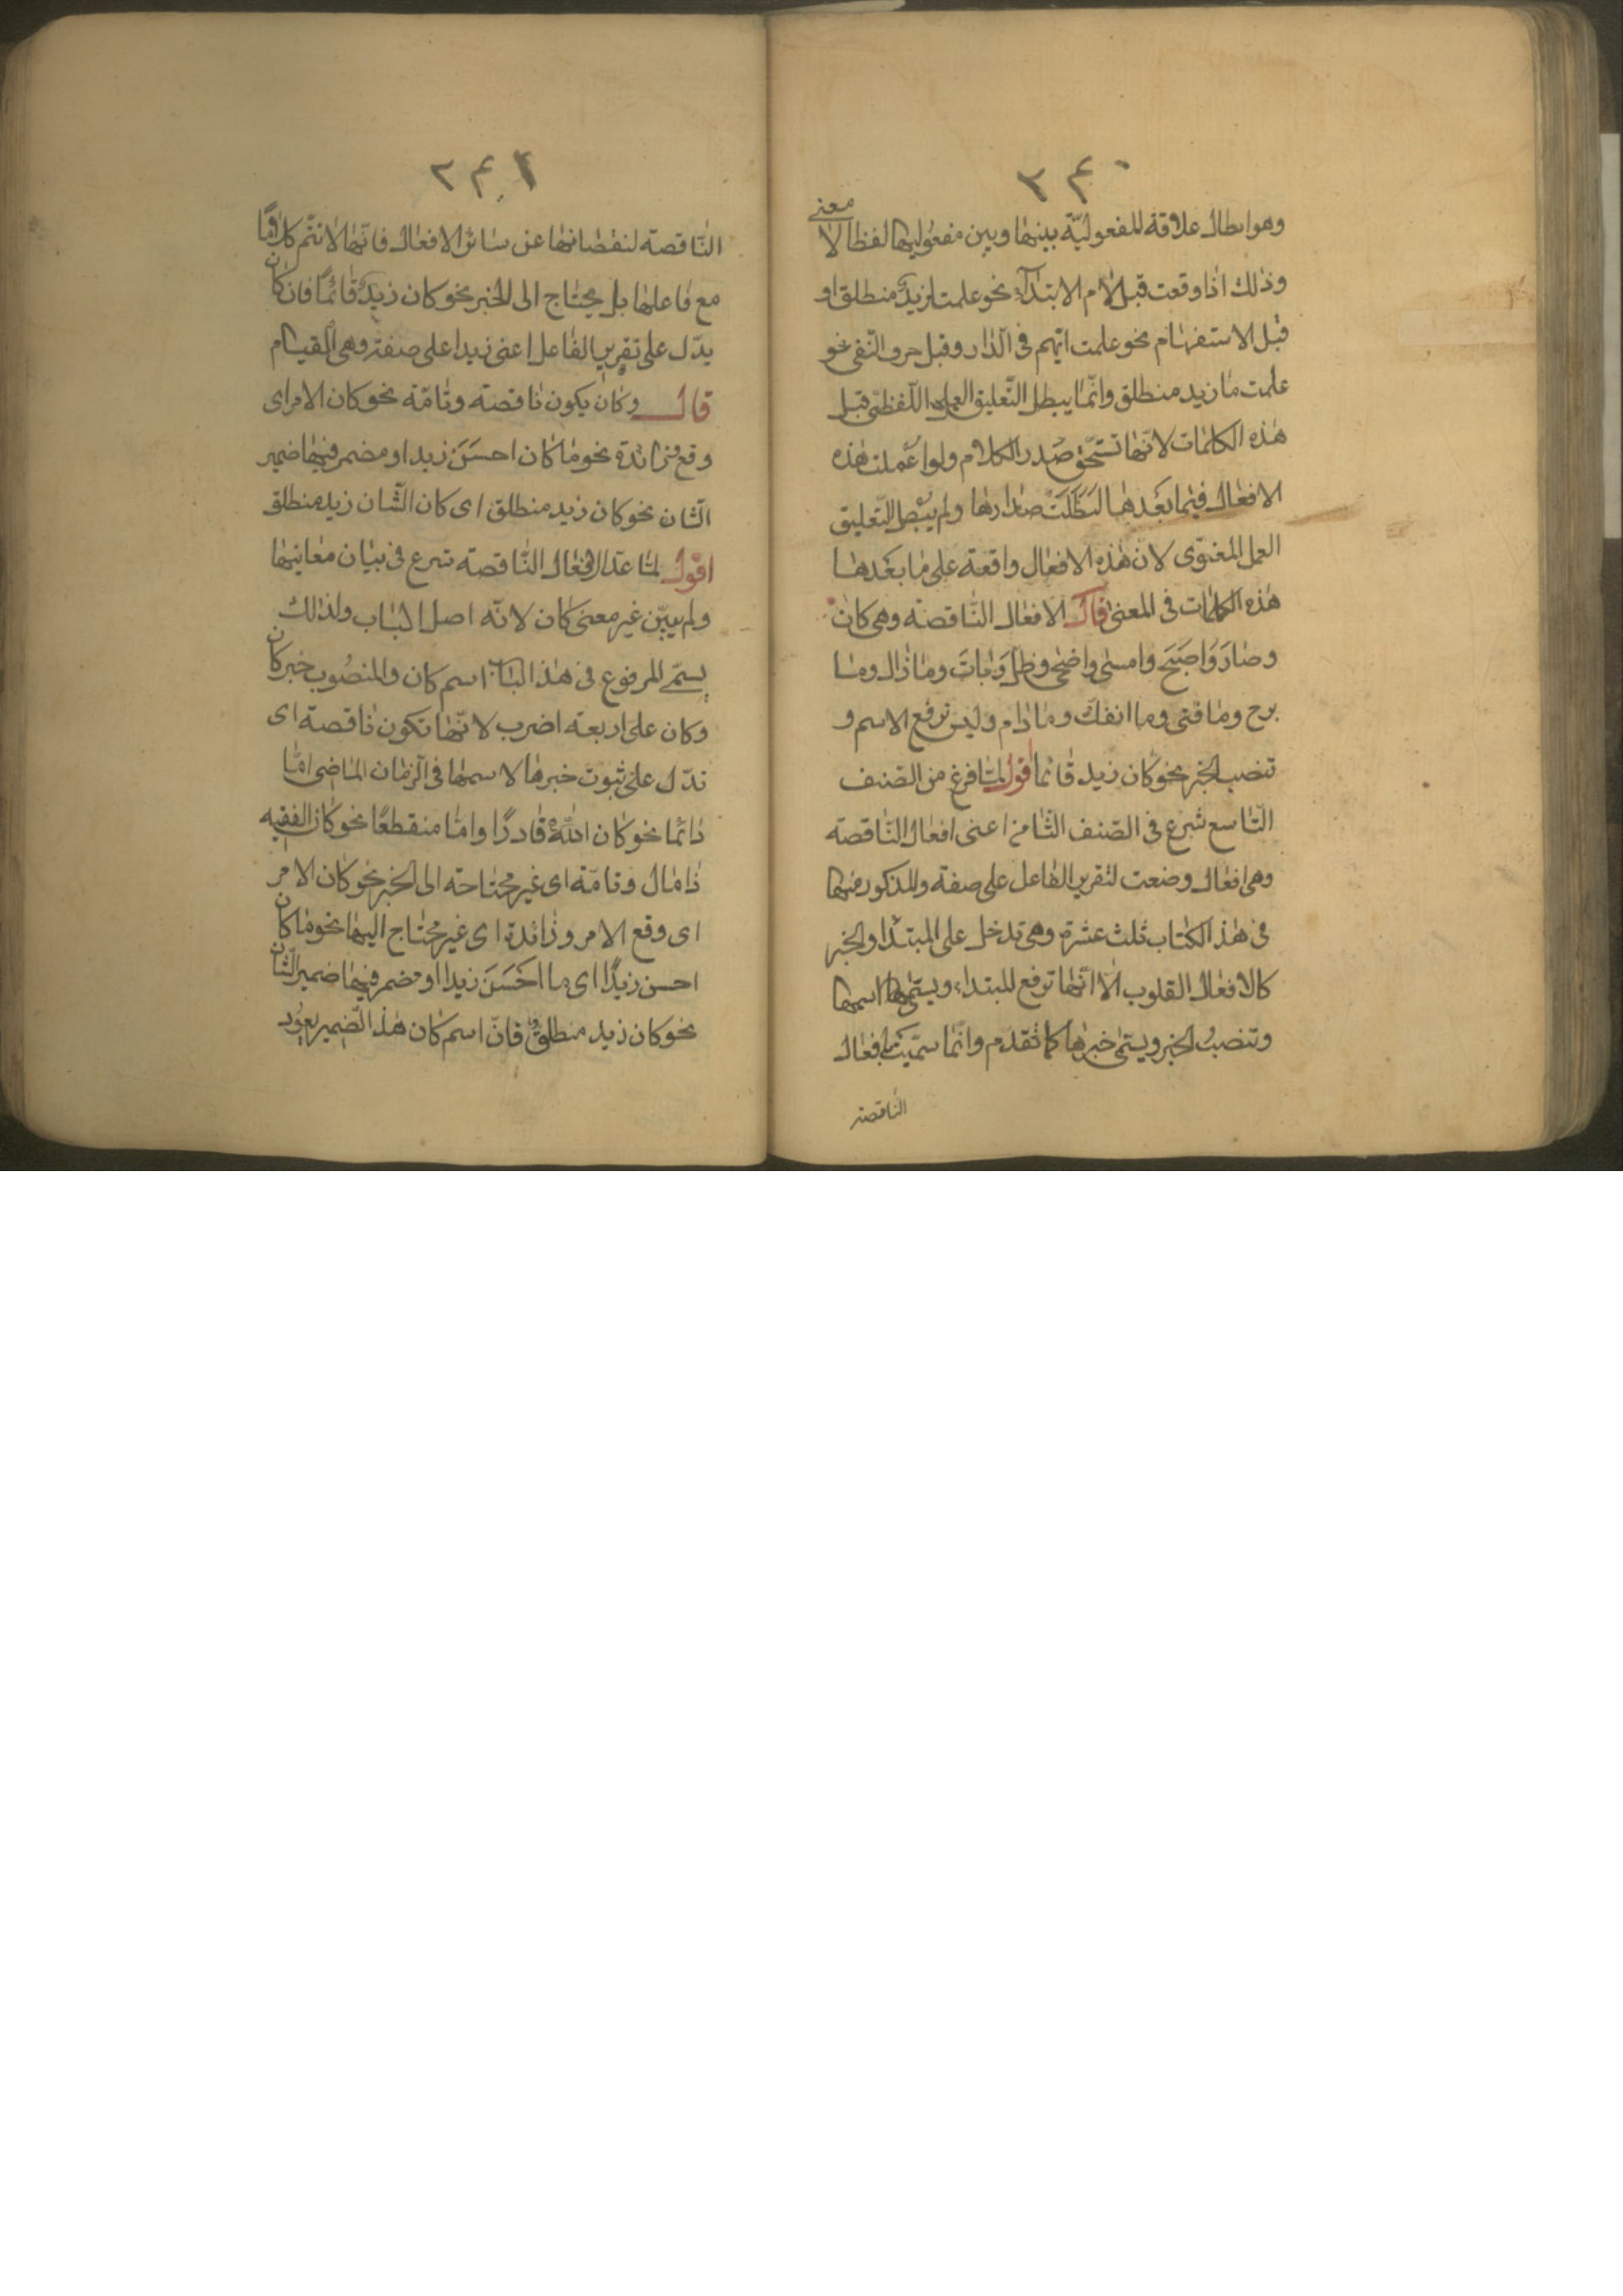 ٣٤٠
وهو ابطال علاقة المفعوليّة بينها وبين مفعوليها لفظا لا معنى
وذلك اذا وقعت قبل لام الابتداء نحو علمت لزيد منطلق او
قبل الاستفهام نحو علمت ايّهم فى الدّار وقبل حرف النّفى نحو
علمت ما زيد منطلق وانّما يبطل التّعليق العمل اللّفظىّ قبل
هذه الكلمات لانّها تستحقّ صدر الكلام ولو اعملت هذه
الافعال فيما بعدها لبطلت صدارتها ولم يبطل التّعليق
العمل المعنوى لان هذه الافعال واقعة على ما بعدها
هذه الكلمات فى المعنى قال الافعال النّاقصة وهى كان
وصارَ وَاصبَحَ وامسى واضحى وظلّ وَباتَ وما زال وما
برح وما فتى وما انفكّ وما دام وليس ترفع الاسم و
تنصب الخبر نحو كان زيد قائما اقول لمّا فرغ من الصّنف
التّاسع شرع فى الصّنف الثّامن اعنى افعال النّاقصة
وهى افعال وضعت لتقرير الفاعل على صفة والمذكور منها
فى هذا الكتاب ثلث عشرة وهى تدخل على المبتدا والخبر
كالافعال القلوب الّا انّها ترفع المبتداء ويسمّى اسمها
وتنصبُ الخبر ويسمّى خبرها كما تقدم وانّما سمّيت افعال
النّاقصة
٢٤١
النّاقصة لنقصانها عن سائر الافعال فانّها لا تتم كلامًا
مع فاعلها بل يحتاج الى الخبر نحو كان زيدٌ قائمًا فان كان
يدّل على تقرير الفاعل اعنى زيدا على صفة وهى القيام
قال وكان يكون ناقصة وتامّة نحو كان الامر اى
وقع وزائدة نحو ما كان احسَنَ زيدا ومضمر فيها ضمير
الشّان نحو كان زيد منطلق اى كان الشّان زيد منطلق
اقول لمّا عدّ الافعال النّاقصة شرع فى بيان معانيها
ولم يبيّن غير معنى كان لانّه اصل الباب ولذلك
يسمّى المرفوع فى هذا الباب اسم كان والمنصُوب خبر كان
وكان على اربعة اضرب لانّها تكون ناقصة اى
تدّل على ثبوت خبرها لاسمها فى الزمان الماضى امّا
دائما نحو كان اللّٰه قادرًا وامّا منقطعًا نحو كان الفقيه
ذا مال وتامّة اى غير محتاجة الى الخبر نحو كان الامر
اى وقع الامر وزائدة اى غير محتاج اليها نحو ما كان
احسن زيدًا اى ما احَسَنَ زيدا ومضمر فيها ضمير الشّان
نحو كان زيد منطلق فانّ اسم كان هذا الضّمير يعود